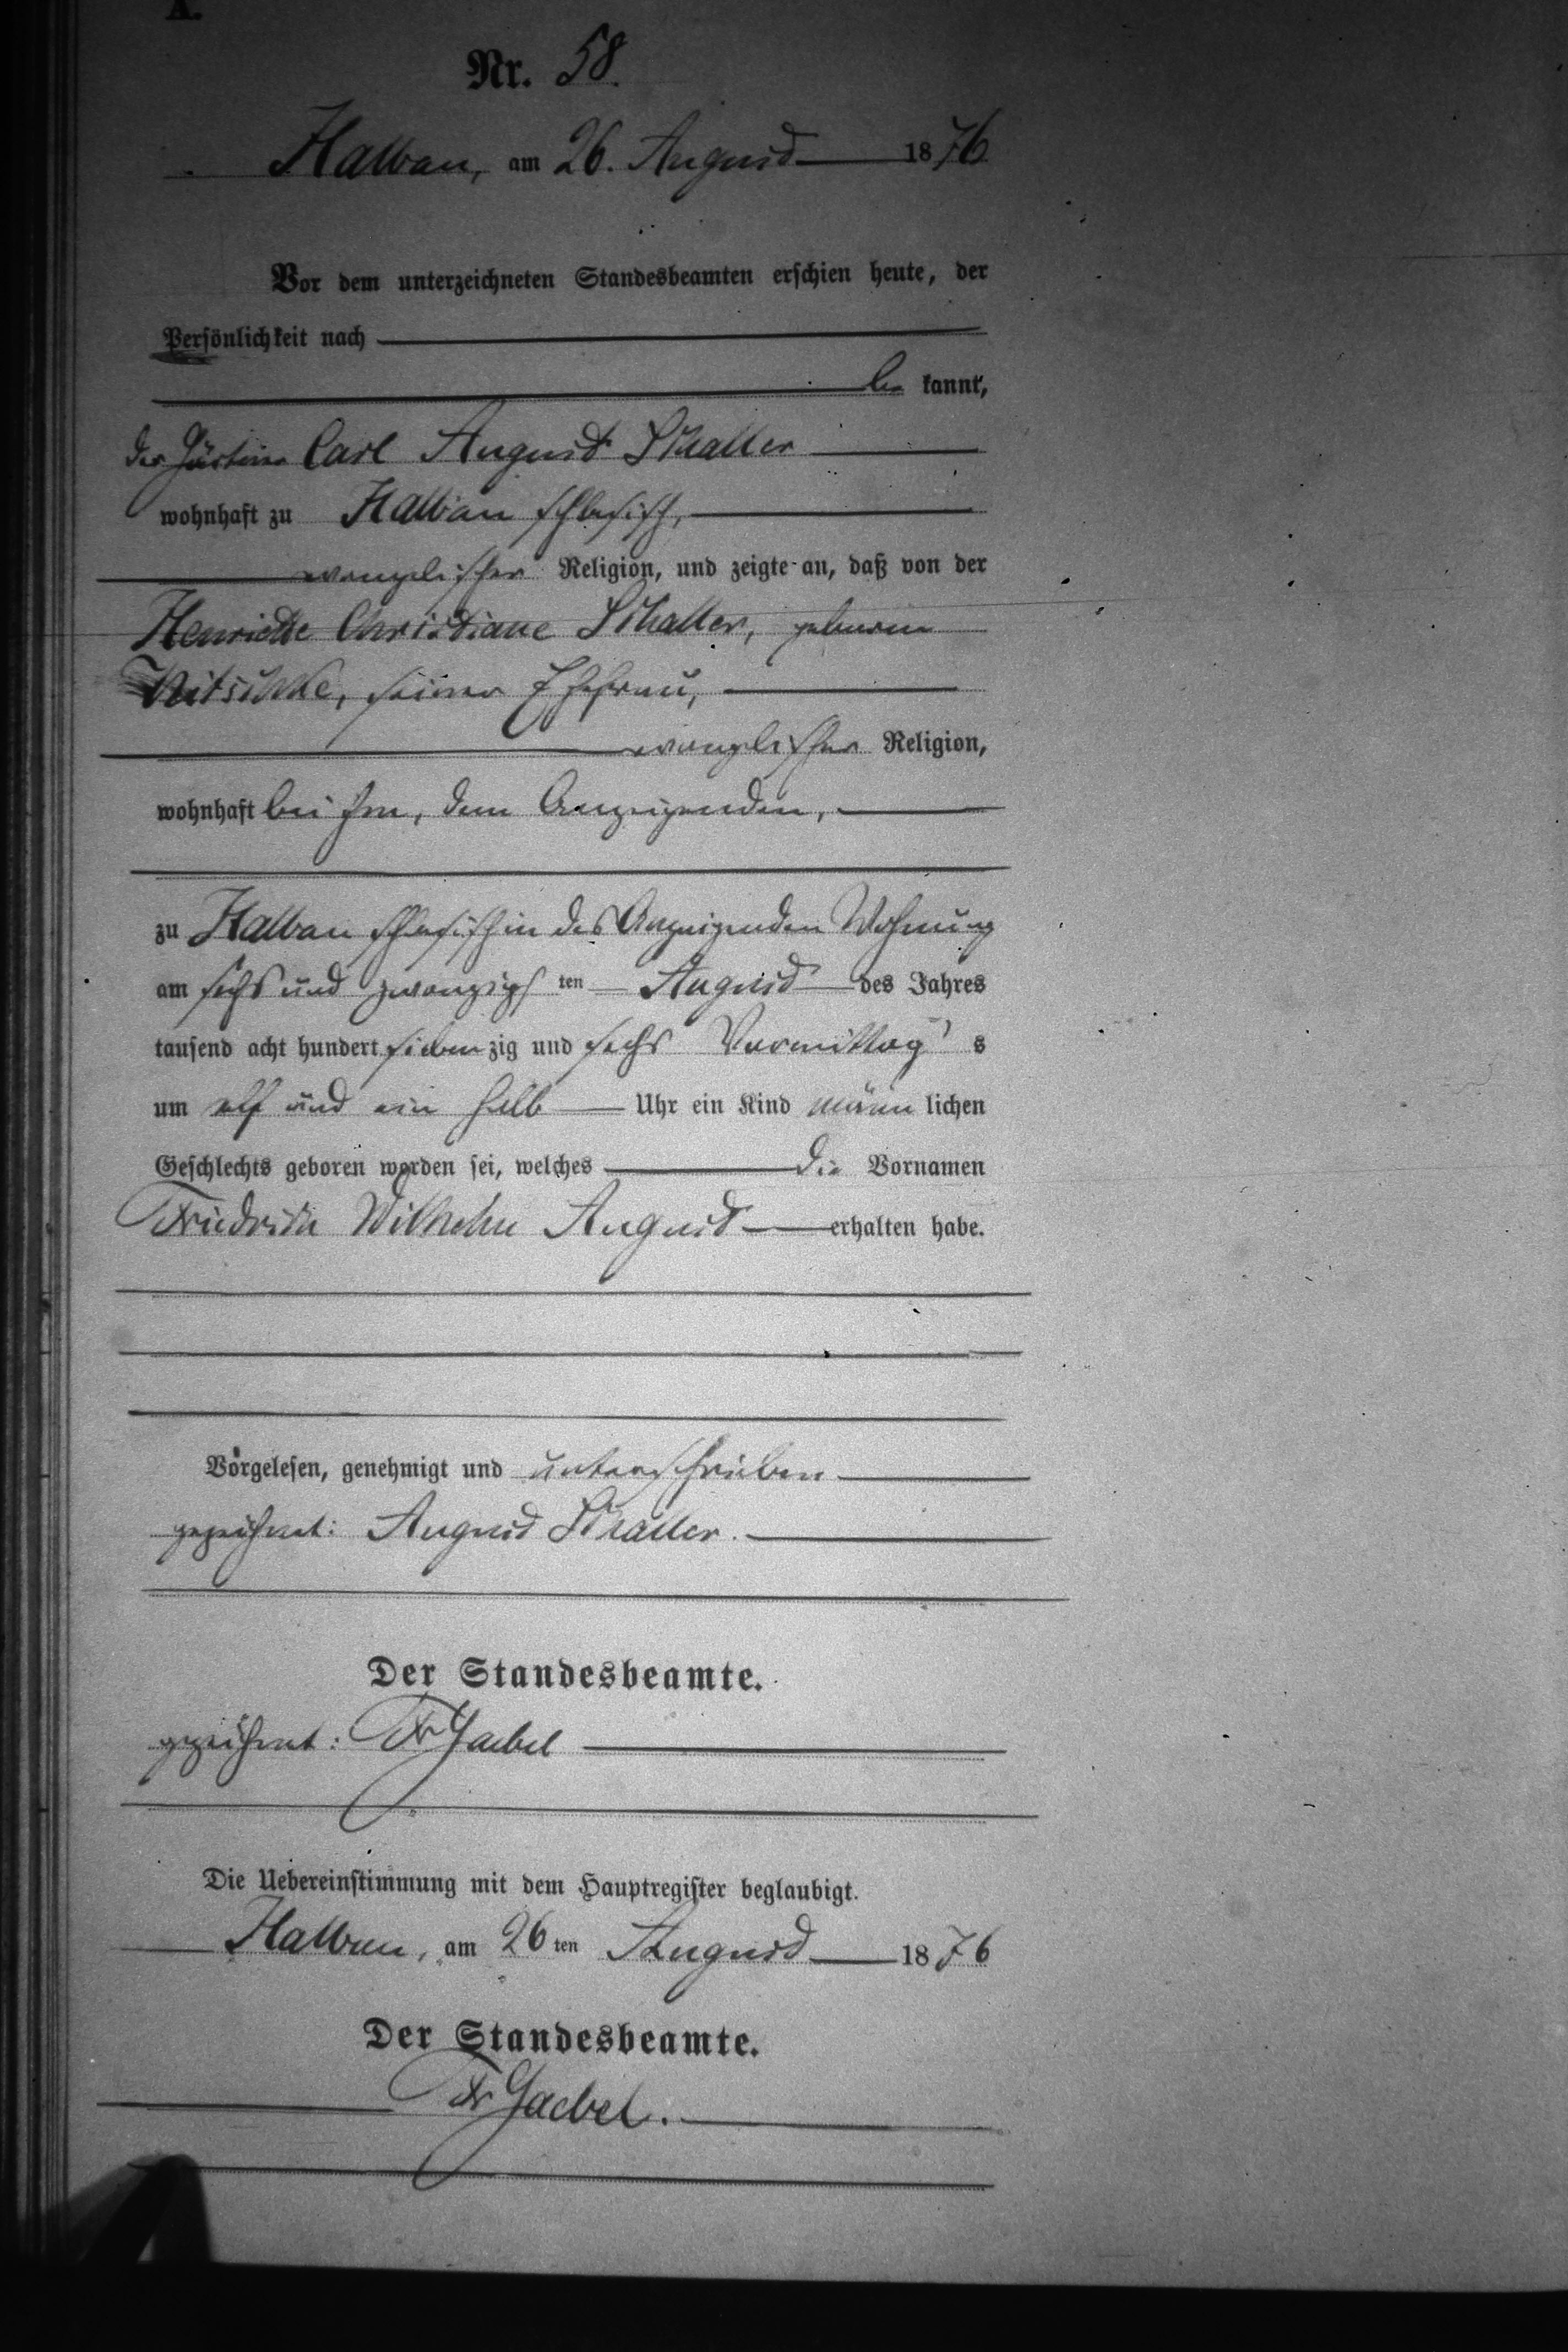 A.
Nr. 58.
Halbau, am 26. August 1876
Vor dem unterzeichneten Standesbeamten erschien heute, der
Persönlichkeit nach
be kannt,
der Gärtner Carl August Schaller
wohnhaft zu Halbau schlesisch,
evangelischer Religion, und zeigte an, daß von der
Henriette Christiane Schaller, geborene
Nitschke, seiner Ehefrau,
evangelischer Religion,
wohnhaft bei ihm, dem Anzeigenden,
zu Halbau schlesisch in des Anzeigenden Wohnung
am sechs und zwanzigs ten August des Jahres
tausend acht hundert sieben zig und sechs Vormittag s
um elf und ein halb Uhr ein Kind männ lichen
Geschlechts geboren worden sei, welches die Vornamen
Friedrich Wilhelm August erhalten habe.
Vorgelesen, genehmigt und unterschrieben
gezeichnet: August Schaller.
Der Standesbeamte.
gezeichnet: Fr Gaebel
Die Uebereinstimmung mit dem Hauptregister beglaubigt.
Halbau, am 26 ten August 1876
Der Standesbeamte.
Fr Gaebel.